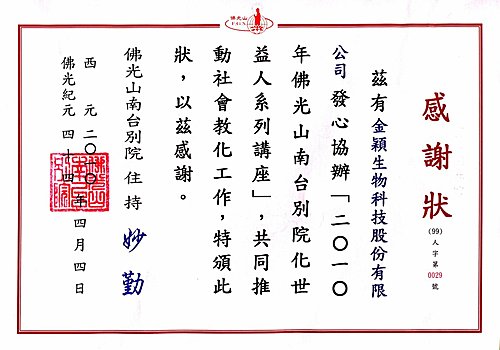 佛光山
感謝狀
(99)人字第0029號
茲有金穎生物科技股份有限
公司 發心協辦「二〇一〇
年佛光山南台別院化世
益人系列講座」,共同推
動社會教化工作,特頒此
狀,以茲感謝。
佛光山南台別院 住持 妙勤
西元二〇一〇
佛光紀元四十四
年四月四日